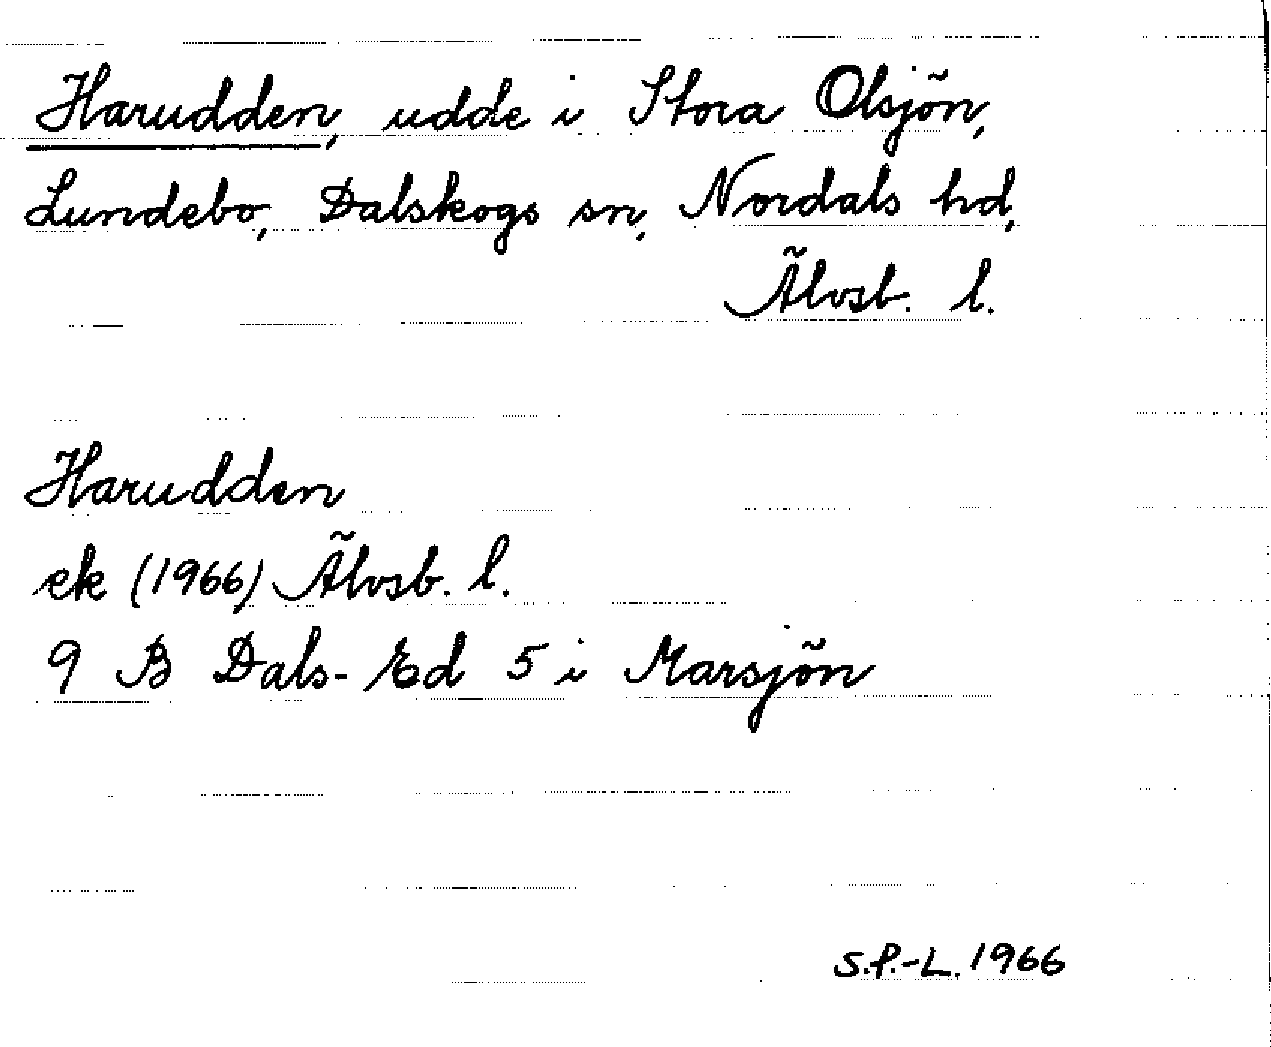 Harudden, udde i Stora Olsjön,
Lundebo, Dalskogs sn, Nordals hd,
Älvsb. l.
Harudden
ek (1966) Älvsb. l.
9 B Dals-Ed 5 i Marsjön
S.P.-L. 1966